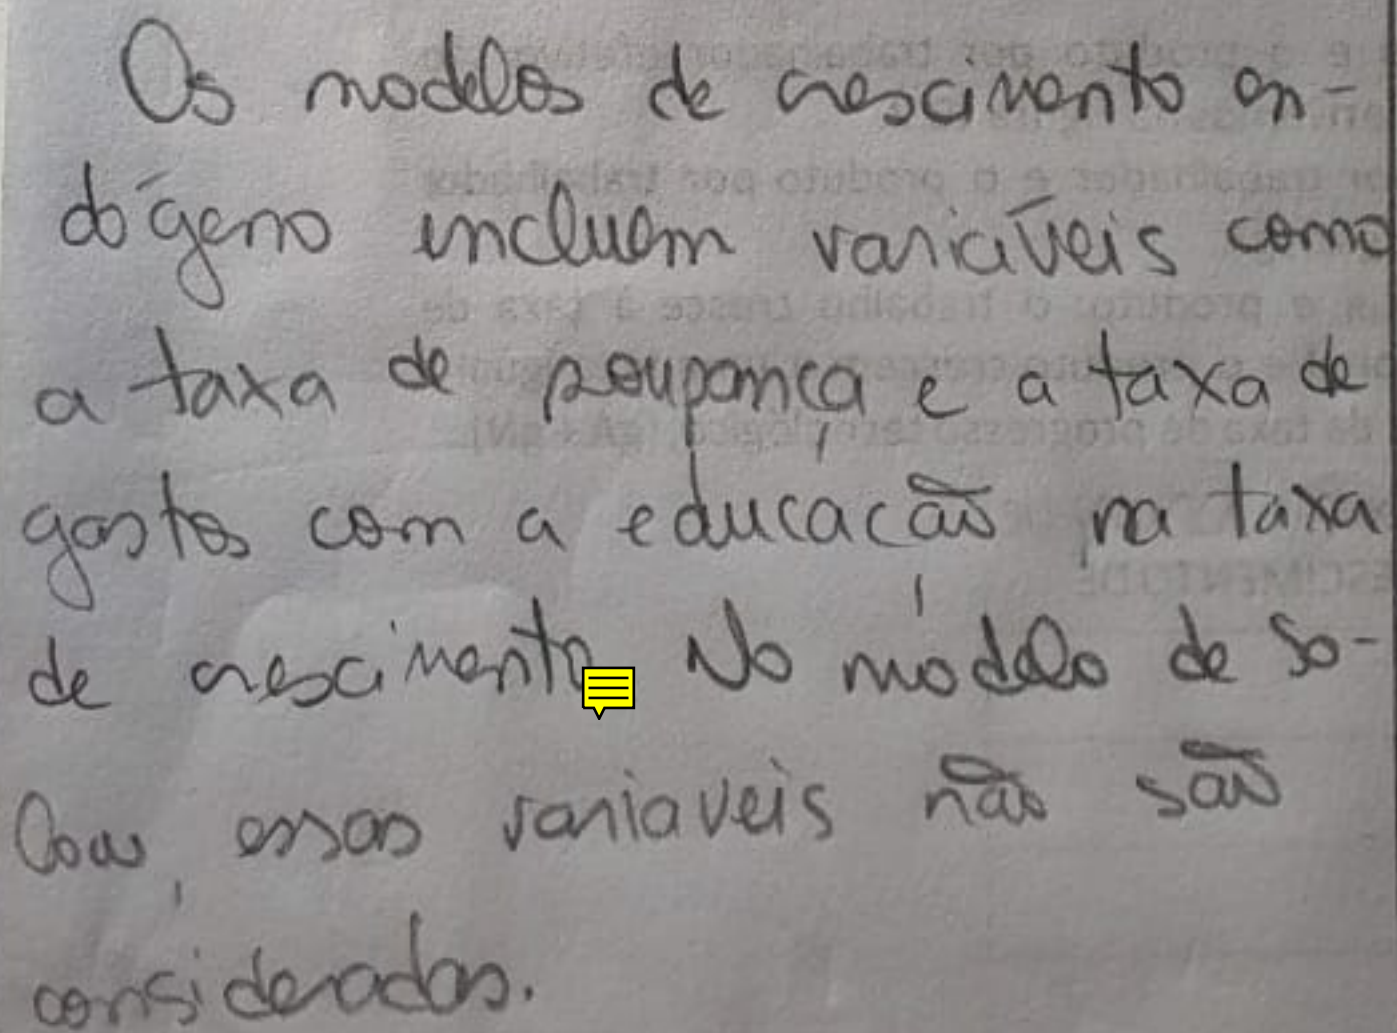 Os modelos de crescimento en-
dógeno incluem variáveis como
a taxa de poupança e a taxa de
gastos com a educação na taxa
de crescimento. No modelo de So-
low, essas variaveis não são
consideradas.